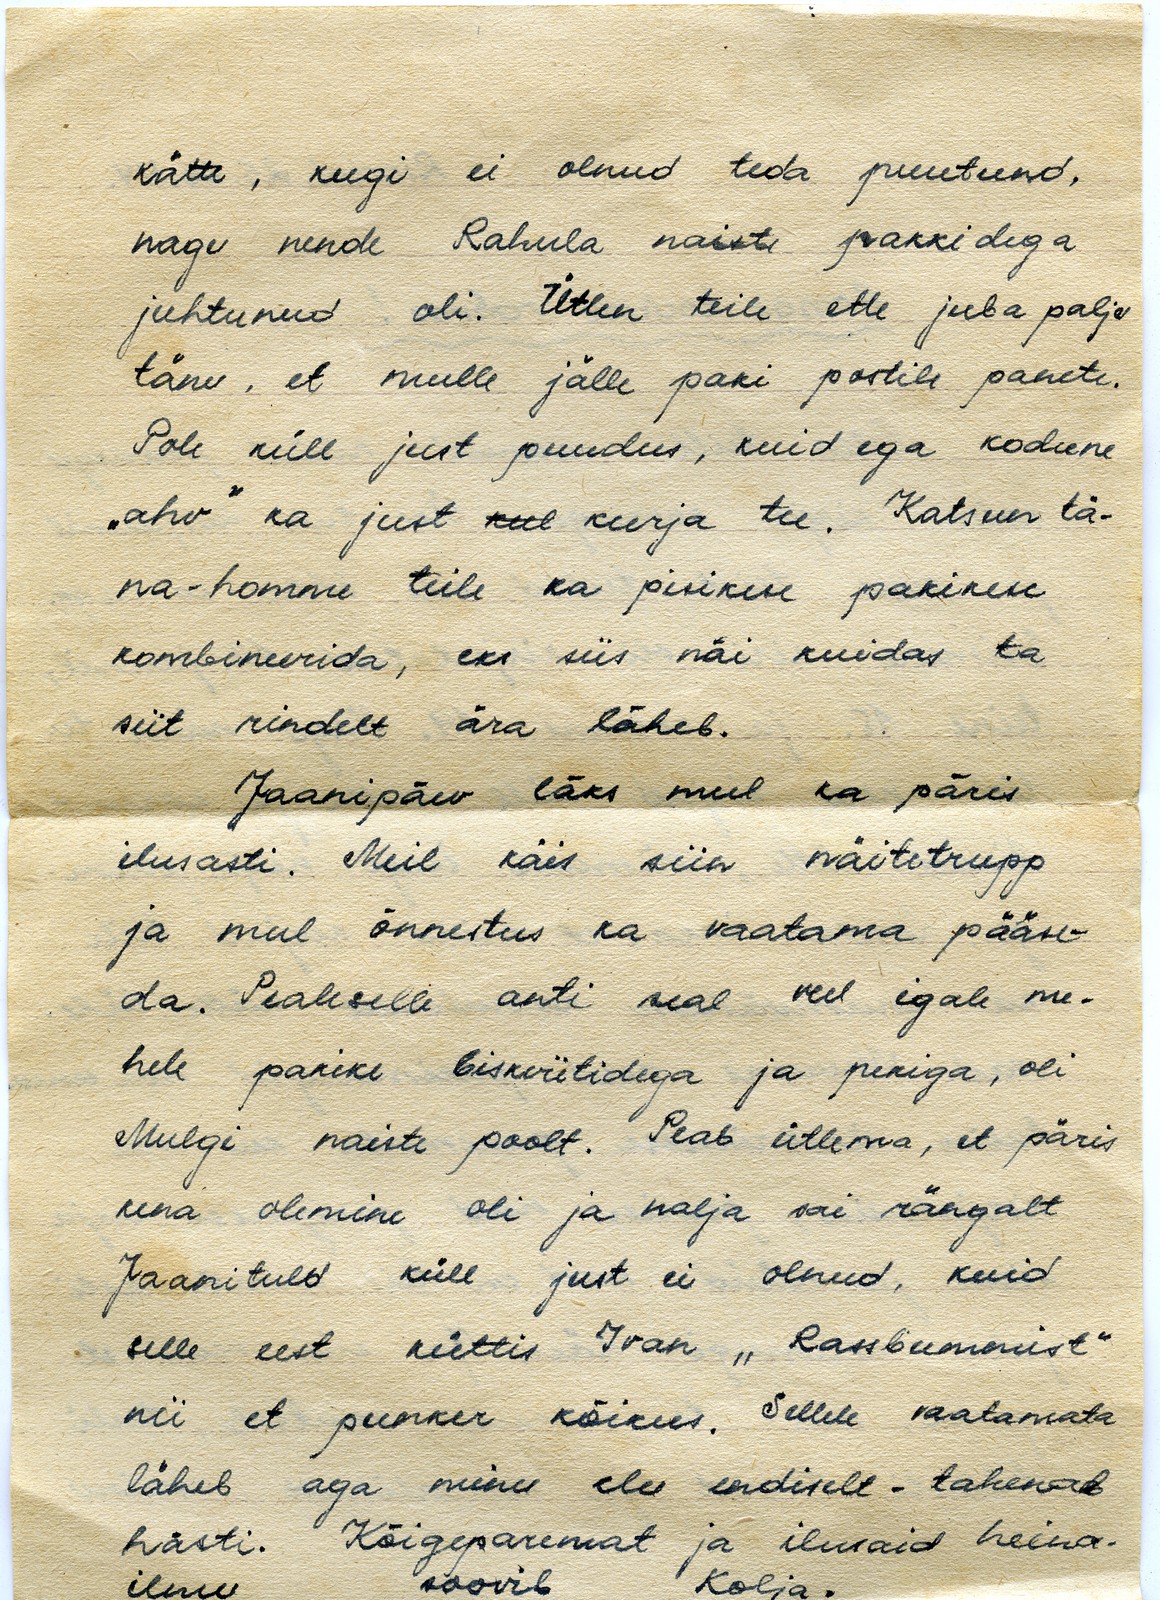 kätte, keegi ei olnud teda puutund,
nagu nende Rahula naiste pakkidega
juhtunud oli. Ütlen teile ette juba palju
tänu, et mulle jälle paki postile panete.
Pole küll just puudus, kuid ega kodune
„ahv" ka just kul kurja tee. Katsun tä-
na-homme teile ka pisikese pakikese
kombineerida, eks siis näi kuidas ta
siit rindelt ära läheb.
Jaanipäev läks mul ka päris
ilusasti. Meil käis siin näitetrupp
ja mul õnnestus ka vaatama pääse-
da. Pealeselle anti seal veel igale me-
hele pakike biskviitidega ja pekiga, oli
Mulgi naiste poolt. Peab ütlema, et päris
kena olemine oli ja nalja sai rängalt
Jaanituld küll just ei olnud, kuid
selle eest küttis Ivan „Rassbummist"
nii et punker kõikus. Sellele vaatamata
läheb aga minu elu endiselt - tahenab
hästi. Kõigeparemat ja ilusaid heina-
ilmu soovib Kolja.